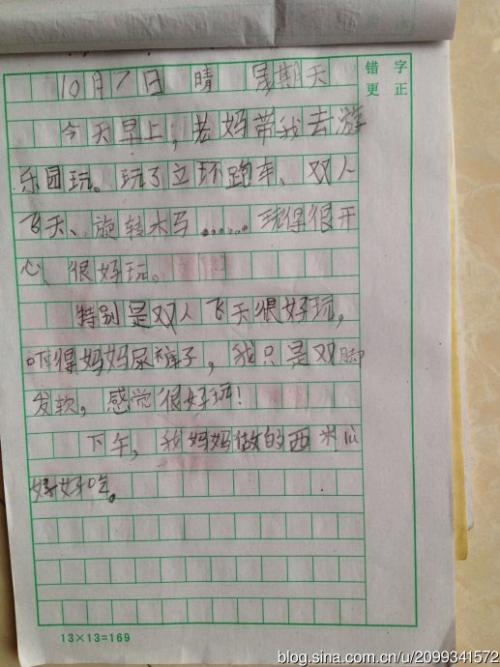 10月7日 晴 星期天
错字
更正
今天早上,老妈带我去游
乐园玩。玩了立环跑车、双人
飞天、旋转木马……玩得很开
心、很好玩。
特别是双人飞天很好玩,
吓得妈妈尿裤子,我只是双脚
发软,感觉很好玩!
下午,我妈妈做的西米
好好吃。
13×13=169
blog.sina.com.cn/u/2099341572